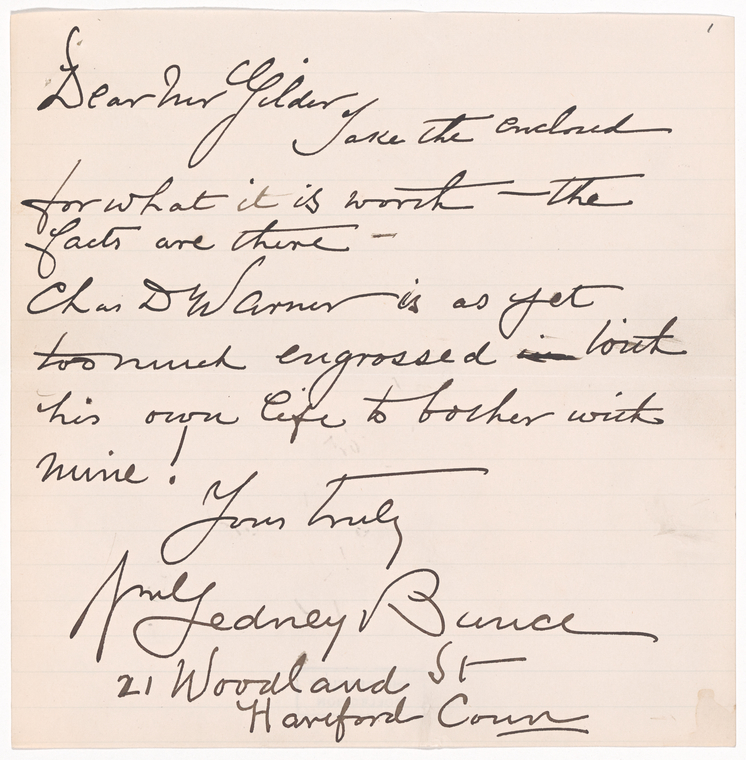 Dear Mr Gilder
Take the enclosed
for what it is worth — the
facts are there —
Chas D Warner is as yet
too much engrossed in with
his own life to bother with
mine!
Yours truly
Wm Gedney Bunce
21 Woodland St
Hartford Conn